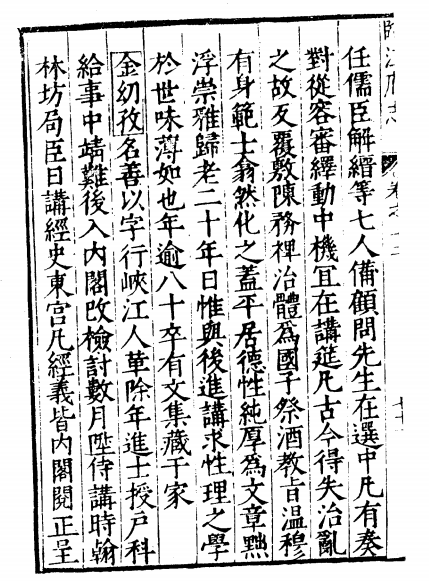 臨江府志
任儒臣解縉等七人備顧問先生在選中凡有奏
對從容審繹動中機冝在講筵凡古今得失治亂
之故反覆敷陳務裨治體爲國子祭酒教旨温穆
有身範士翕然化之蓋平居德性純厚爲文章黜
浮崇雅歸老二十年日惟與後進講求性理之學
於世味薄如也年逾八十卒有文集藏于家
金幼孜名善以字行峽江人革除年進士授戶科
給事中靖難後入內閣改檢討數月陞侍講時翰
林坊局臣日講經史東宮凡經義皆內閣閱正呈